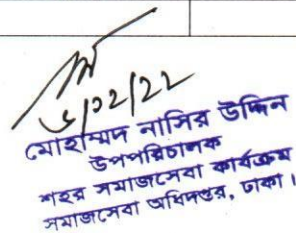 ৬/১২/২২
মোহাম্মদ নাসির উদ্দিন
উপপরিচালক
শহর সমাজসেবা কার্যক্রম
সমাজসেবা অধিদপ্তর, ঢাকা।